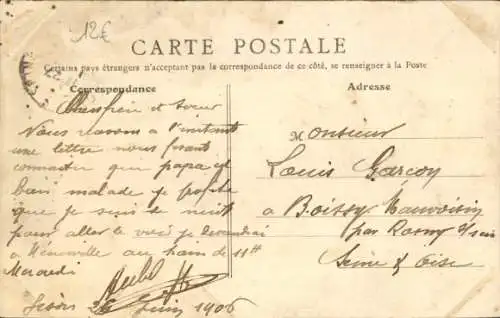 12€
CARTE POSTALE
Certains pays étrangers n'acceptant pas la correspondance de ce côté, se renseigner à la Poste
Correspondance
Cher frère et sœur
Nous à l'instant
une lettre nous fesant
connaitre que papa est
bien malade je profite
que je suis de nuit
pour aller le voir je descendrai
a au train de 11H
Mercredi
26 Juin 1906
Adresse
Monsieur
Louis Garçon
a Boissy Mauvoisin
par Rosny s/ sein
Seine & Oise